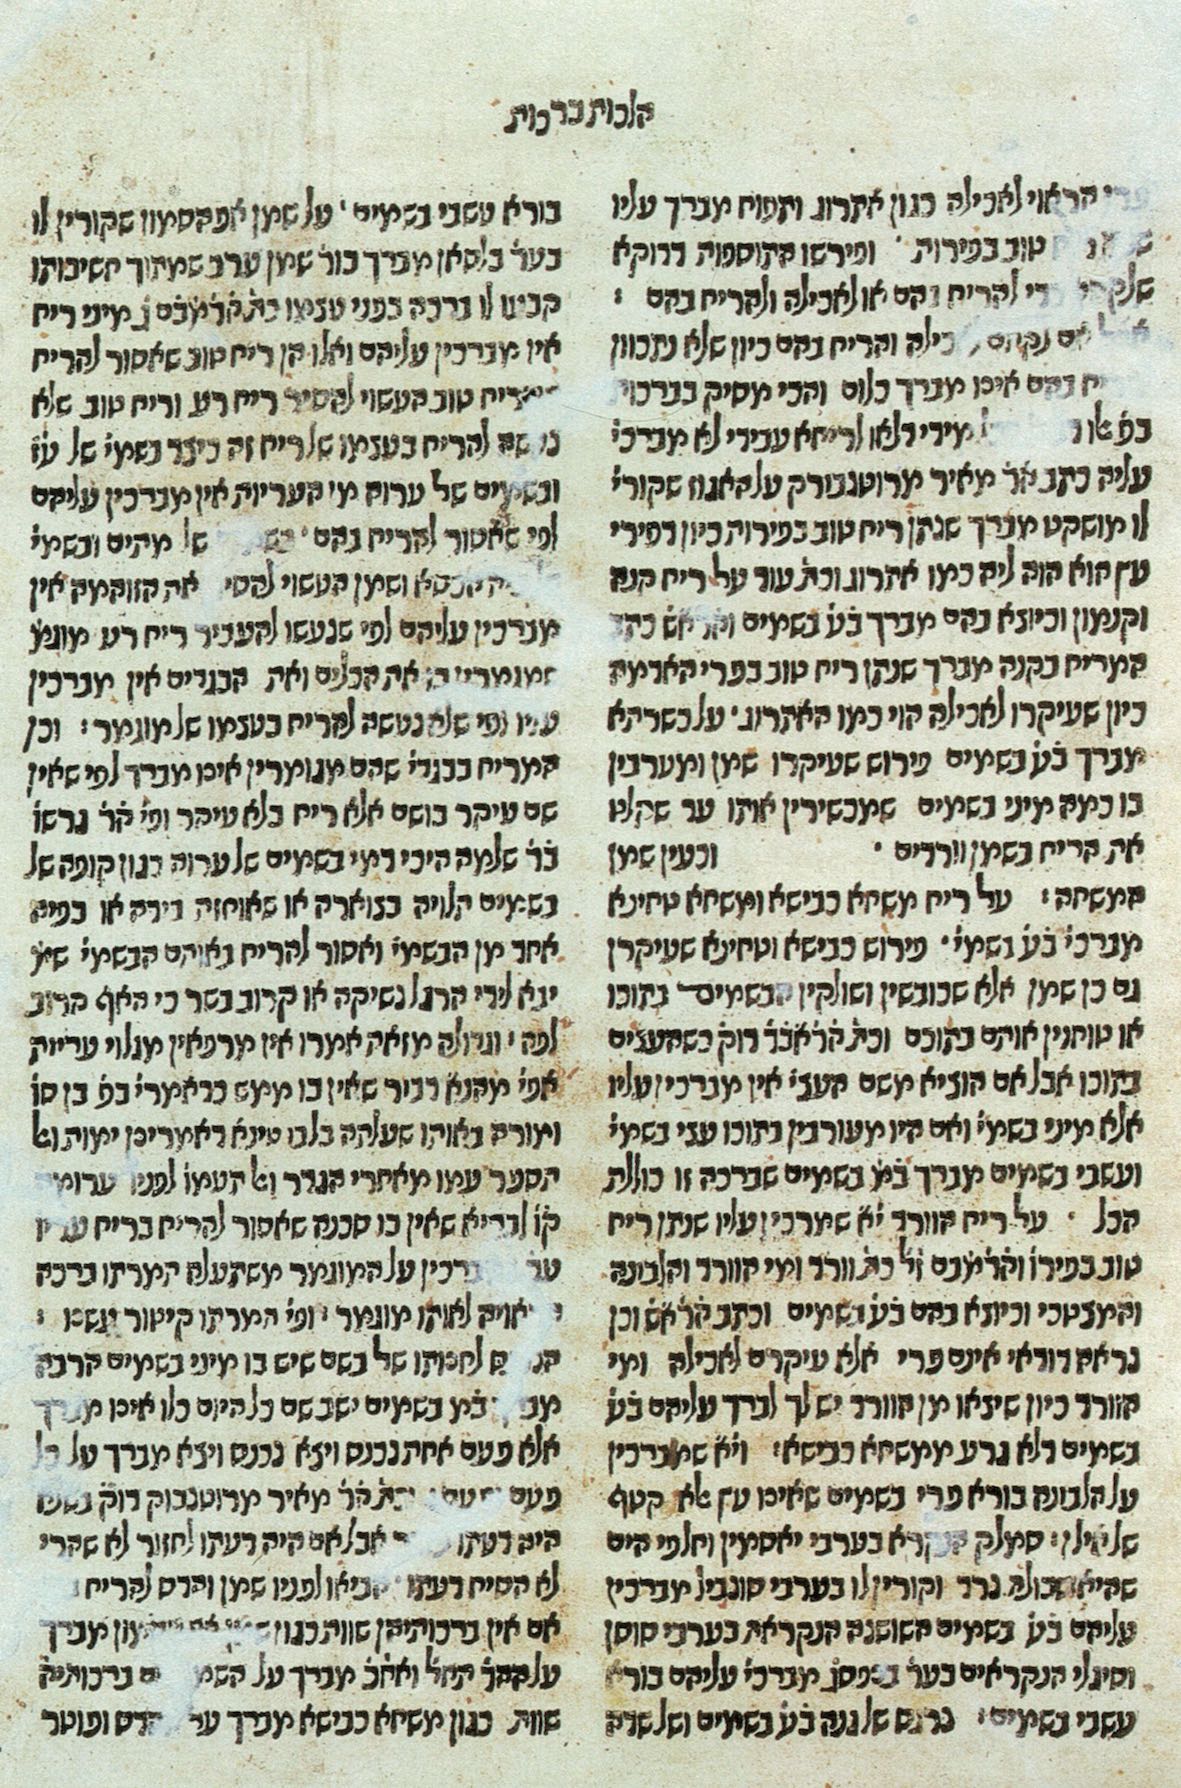 הלכות ברכות
הראוי לאכילה כגון אתרוג ותפוח מברך עליו
טוב בפירות ופירשו התוספות דדוקא
להריח בהם או לאכילה ולהריח בהם
והריח בהם כיון שלא נתכוון
בהם אינו מברך כלום והכי מסיק בברכוֹ
מידי דלאו לריחא עבידי לא מברכיֹ
עליה כתב הרֹ מאיר מרוטנבורק על האגוז שקוריֹ
לו מושקט מברך שנתן ריח טוב בפירות כיון דפירי
עץ הוא הוה ליה כמו אתרוג וכתֹ עוד על ריח קנה
וקנמון וכיוצא בהם מברך בֹעֹ בשמים והֹרֹאֹשֹ כתב
המריח בקנה מברך שנתן ריח טוב בפרי האדמה
כיון שעיקרו לאכילה הוי כמו האתרוג על כשרתא
מברך בֹעֹ בשמים פירוש שעיקרו שמן ומערבין
בו כמה מיני בשמים שמכשירין אותו עד שקלט
את הריח בשמן וורדים וכעין שמן
המשחה על ריח משחא כבישא ומשחא טחינא
מברכיֹ בֹעֹ בשמיֹ פירוש כבישא וטחינא שעיקרן
גם כן שמן אלא שכובשין ושולקין הבשמים בתוכו
או טוחנין אותם בתוכם וכתֹ הֹרֹאֹבֹדֹ דוקֹ כשהעצים
בתוכו אבל אם הוציא משם העציֹ אין מברכין עליו
אלא מיני בשמיֹ ואם היו מעורבין בתוכו עצי בשמיֹ
ועשבי בשמים מברך בֹמֹ בשמים שברכה זו כוללת
הכל על ריח הוורד יֹאֹ שמברכין עליו שנתן ריח
טוב בפירוֹ והֹרֹמֹבֹםֹ זֹלֹ כתֹ וורד ומי הוורד והלבונה
והמצטכי וכיוצא בהם בֹעֹ בשמים וכתב הֹרֹאֹשֹ וכן
נראה דודאי אינם פרי אלא עיקרם לאכילה ומי
הוורד כיון שיצאו מן הוורד יש לך לברך עליהם בֹעֹ
בשמים דלא גרע ממשחא כבישא ויֹאֹ שמברכין
על הלבונה בורא פרי בשמים שאינו עץ אלא קטף
של אילן סמלק הנקרא בערבי יאסמין וחלפי הים
שהיא שבולת נרד וקורין לו בערבי סונביל מברכין
עליהם בֹעֹ בשמים השושנה הנקראת בערבי סוסן
וסיגלי הנקראים בערֹ מברכיֹ עליהם בורא
עשבי בשמים נרגס של גנה בֹעֹ בשמים ושל שדה
בורא עשבי בשמים על שמן אפהסמון שקורין לו
בערֹ בלסאן מברך בורֹ שמן ערב שמתוך חשיבותו
קבעו לו ברכה בפני עצמו כתֹ הֹרֹמֹבֹםֹ גֹ מיני ריח
אין מברכין עליהם ואלו הן ריח טוב שאסור להריח
וריח טוב העשוי להסיר ריח רע וריח טוב שלא
נעשה להריח בעצמו של ריח זה כיצד בשמיֹ של עֹזֹ
ובשמים של ערוה מן העריות אין מברכין עליהם
לפי שאסור להריח בהם של מתים ובשמיֹ
הכסא ושמן העשוי את הזוהמה אין
מברכין עליהם לפי שנעשו להעביר ריח רע מוגמֹ
שמגמרין בו את הכלים ואת הבגדים אין מברכין
עליו לפי שלא נעשה להריח בעצמו של מוגמר וכן
המריח בבגדיֹ שהם מגומרין אינו מברך לפי שאין
שם עיקר בושם אלא ריח בלא עיקר ופיֹ הרֹ גרשוֹ
בֹרֹ שלמה היכי דמי בשמים של ערוה כגון קופה של
בשמים תלויה בצוארה או שאוחזה בידה או בפיה
אחד מן הבשמיֹ ואסור להריח באותם הבשמיֹ שמֹ
יבא לידי הרגל נשיקה או קרוב בשר כי האף קרוב
לפה וגדולה מזאת אמרו אין מרפאין מגלוי עריות
אפיֹ מהנאֹ דבור שאין בו ממש כדאמריֹ בפֹ בן סוֹ
ומורה באותו שעלתה בלבו טינא דאמרינן ימות ואל
תספר עמו מאחרי הגדר ואל תעמוֹ לפניו ערומה
קֹוֹ לבריא שאין בו סכנה שאסור להריח בריח
מברכין על המוגמר משתעלה תמרתו ברכה
הראויה לאותו מוגמר ופיֹ תמרתו קיטור
הנכנס לחנותו של בשם שיש בו מיני בשמים הרבה
מברך בֹמֹ בשמים ישב שם כל היום כלו אינו מברך
אלא פעם אחת נכנס ויצא נכנס ויצא מברך על כל
פעם וכתֹ הרֹ מאיר מרוטנבוק דוקֹ
היה דעתו אבל אם היה דעתו לחזור לא שהרי
לא הסיח דעתו הביאו לפניו שמן והדס להריח
אם אין ברכותיהן שוות כגון מברך
על ההדֹ ואחֹכֹ מברך על השמן ברכותיה
שוות כגון משחא כבישא מברך על הדס ופוטר